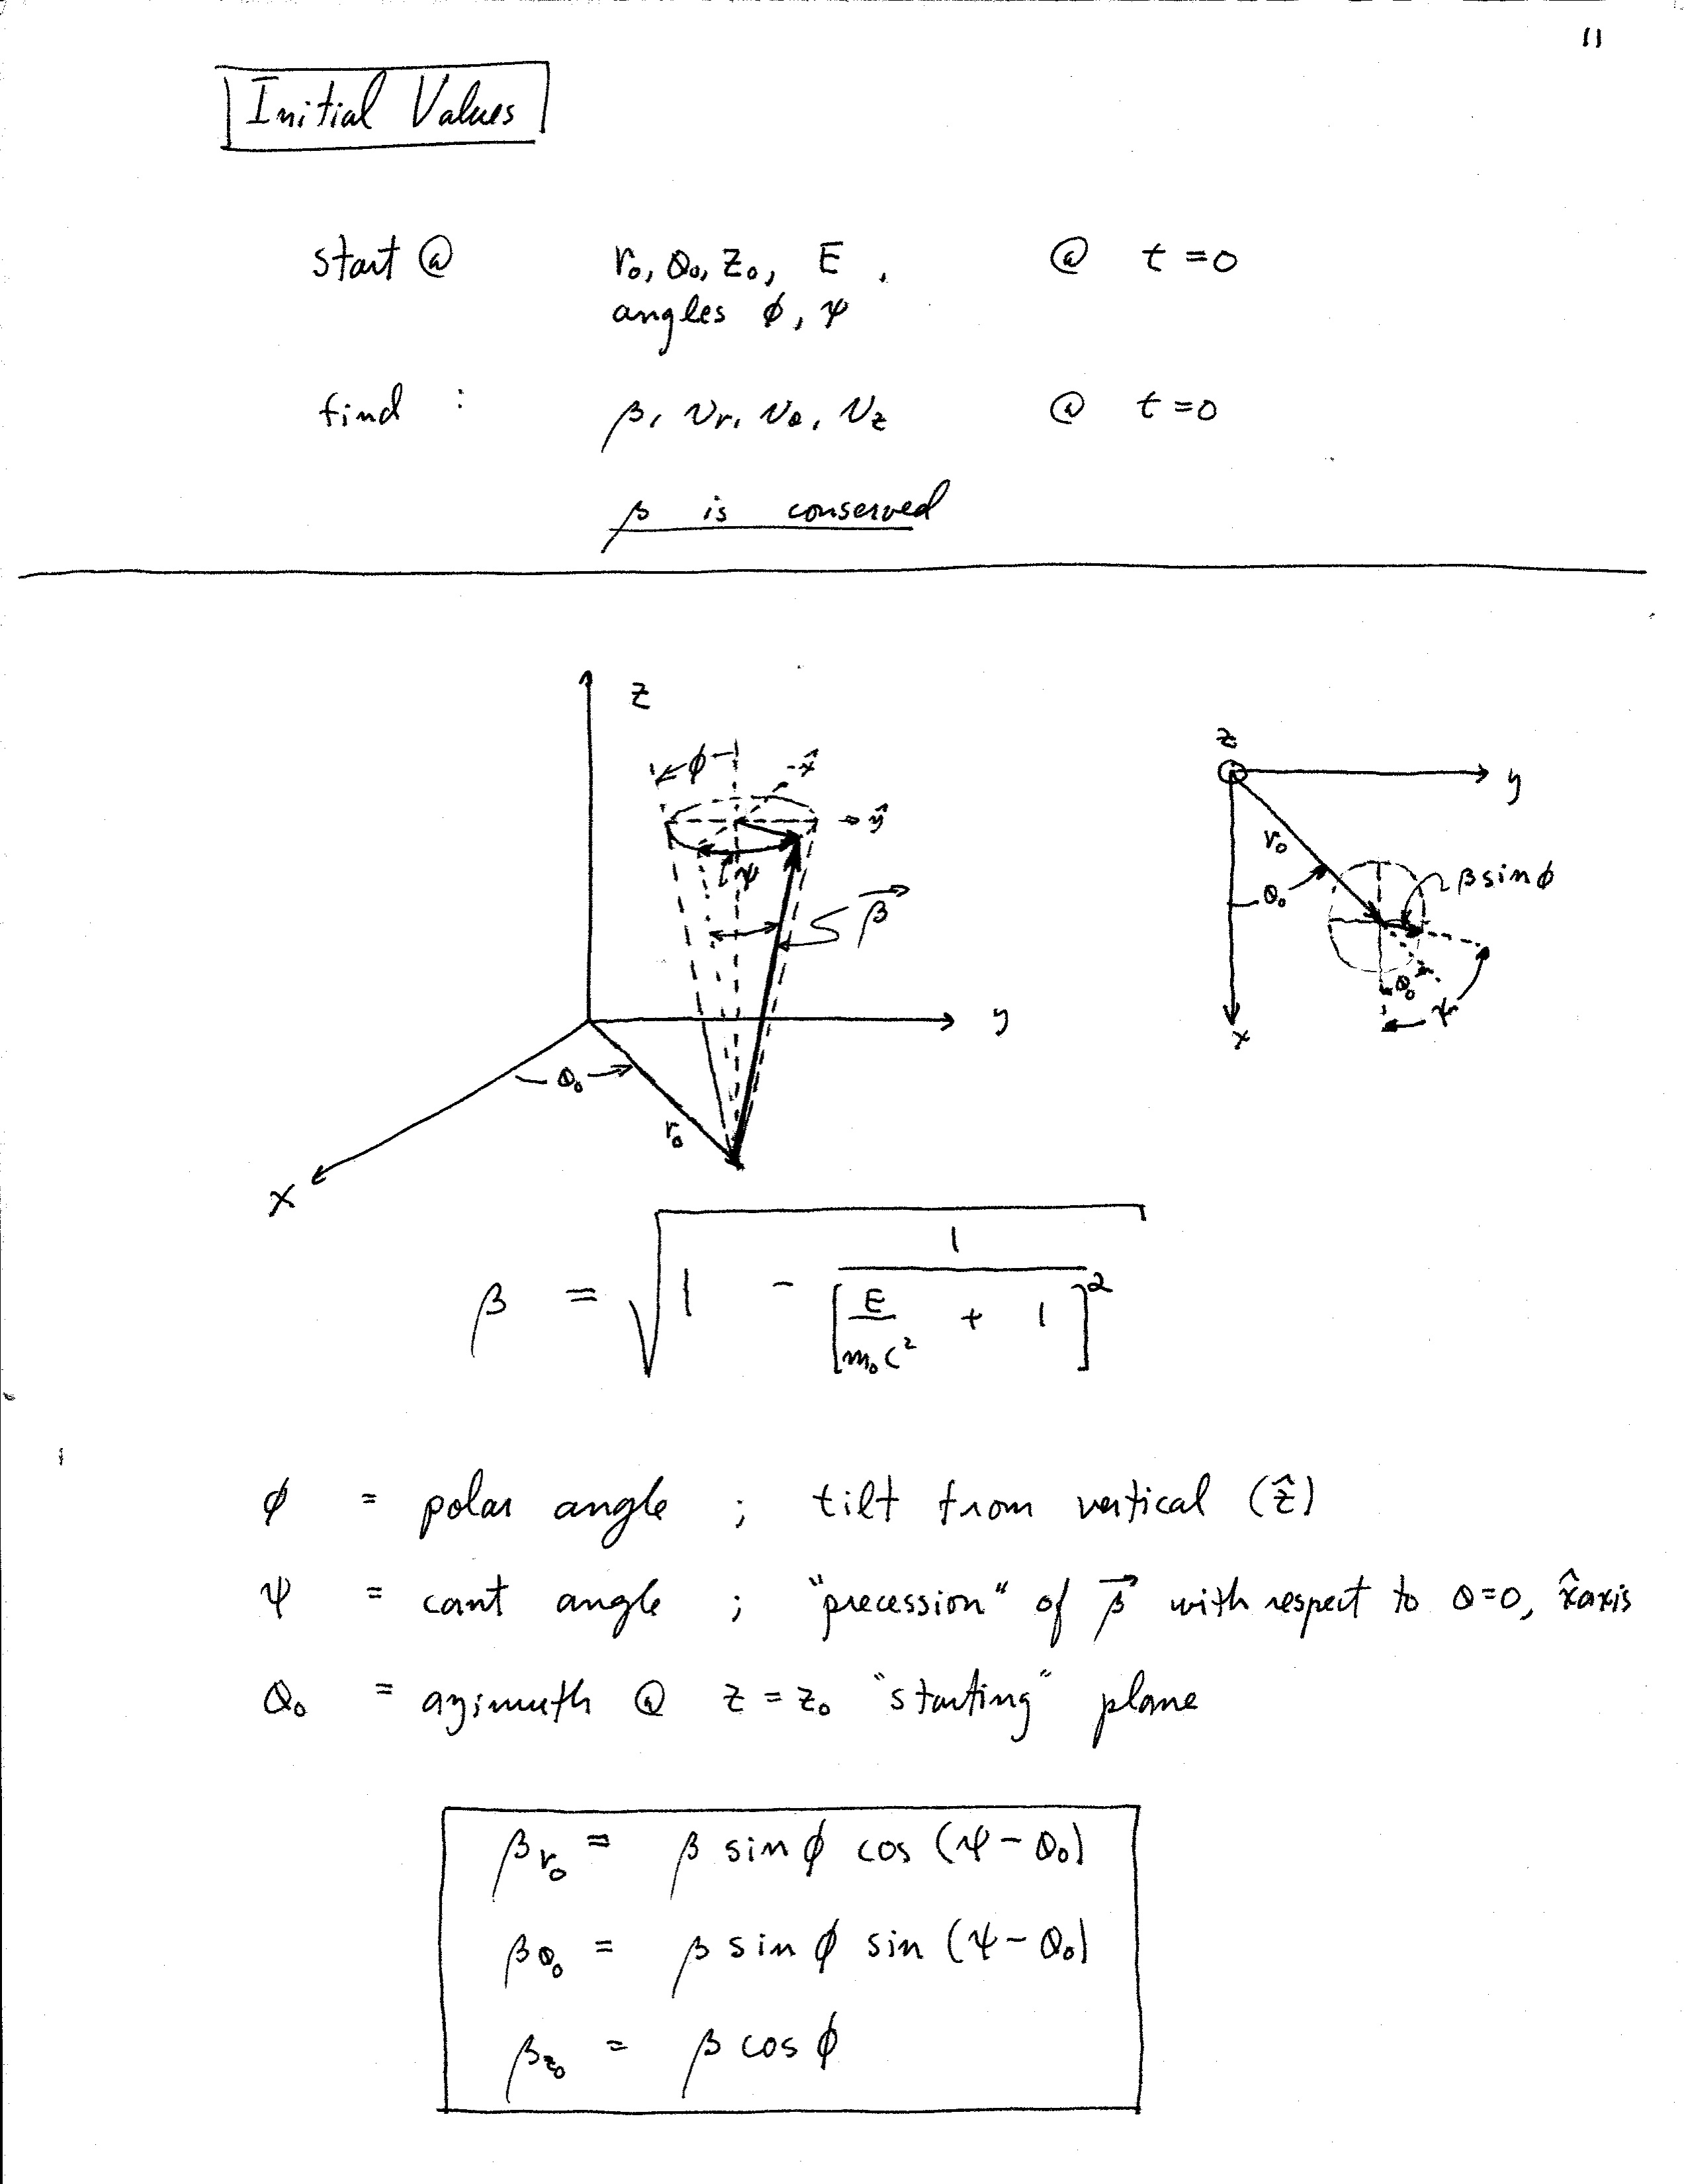 11
Initial Values
start @ r₀, θ₀, z₀, E, @ t = 0
angles ϕ, ψ
find : β, vr, vθ, vz @ t = 0
β is conserved
z
ϕ
-x̂
ŷ
ψ
β⃗
y
θ₀
r₀
x
z
y
r₀
θ₀
β sin ϕ
θ₀
ψ
x
β = √(1 - 1/[E/m₀c² + 1]²)
ϕ = polar angle ; tilt from vertical (ẑ)
ψ = cant angle ; "precession" of β⃗ with respect to θ=0, x̂ axis
θ₀ = azimuth @ z = z₀ "starting" plane
βr₀ = β sin ϕ cos (ψ - θ₀)
βθ₀ = β sin ϕ sin (ψ - θ₀)
βz₀ = β cos ϕ